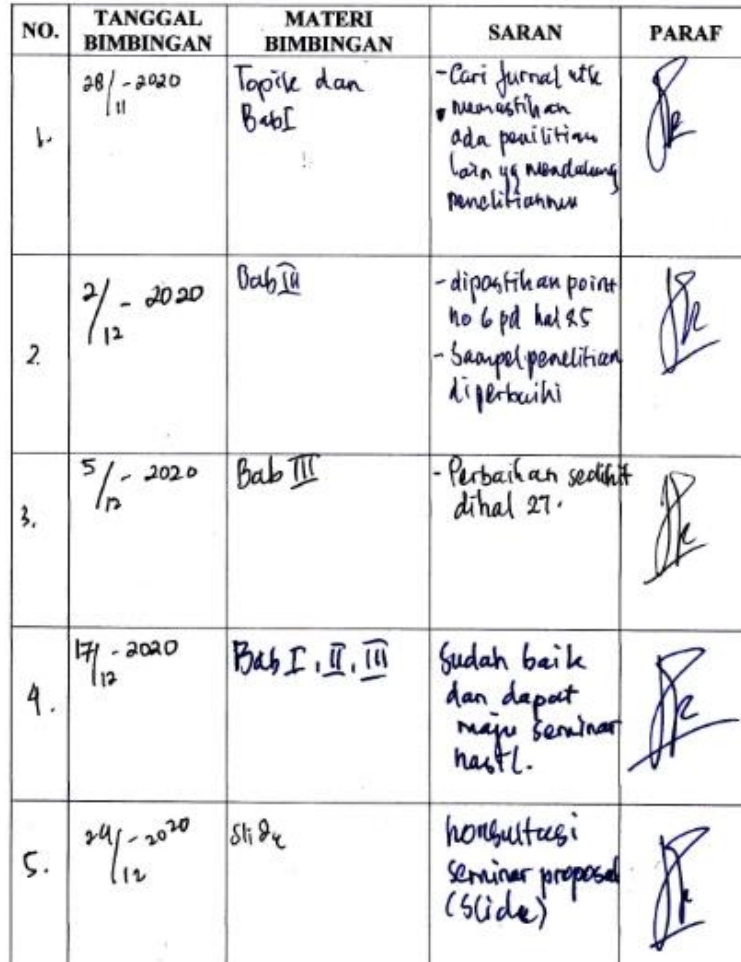 NO. TANGGAL BIMBINGAN MATERI BIMBINGAN SARAN PARAF
1. 28/11-2020 Topik dan Bab I - Cari Jurnal utk
memastikan
ada penilitian
lain yg mendukung
penelitianmu
2. 2/12 - 2020 Bab III - dipastikan point
no 6 pd hal 25
- Sampel penelitian
diperbaiki
3. 5/12 - 2020 Bab III - Perbaikan sedikit
dihal 27.
4. 17/12 - 2020 Bab I, II, III Sudah baik
dan dapat
maju seminar
hasil.
5. 29/12 - 2020 Slide konsultasi
seminar proposal
(Slide)